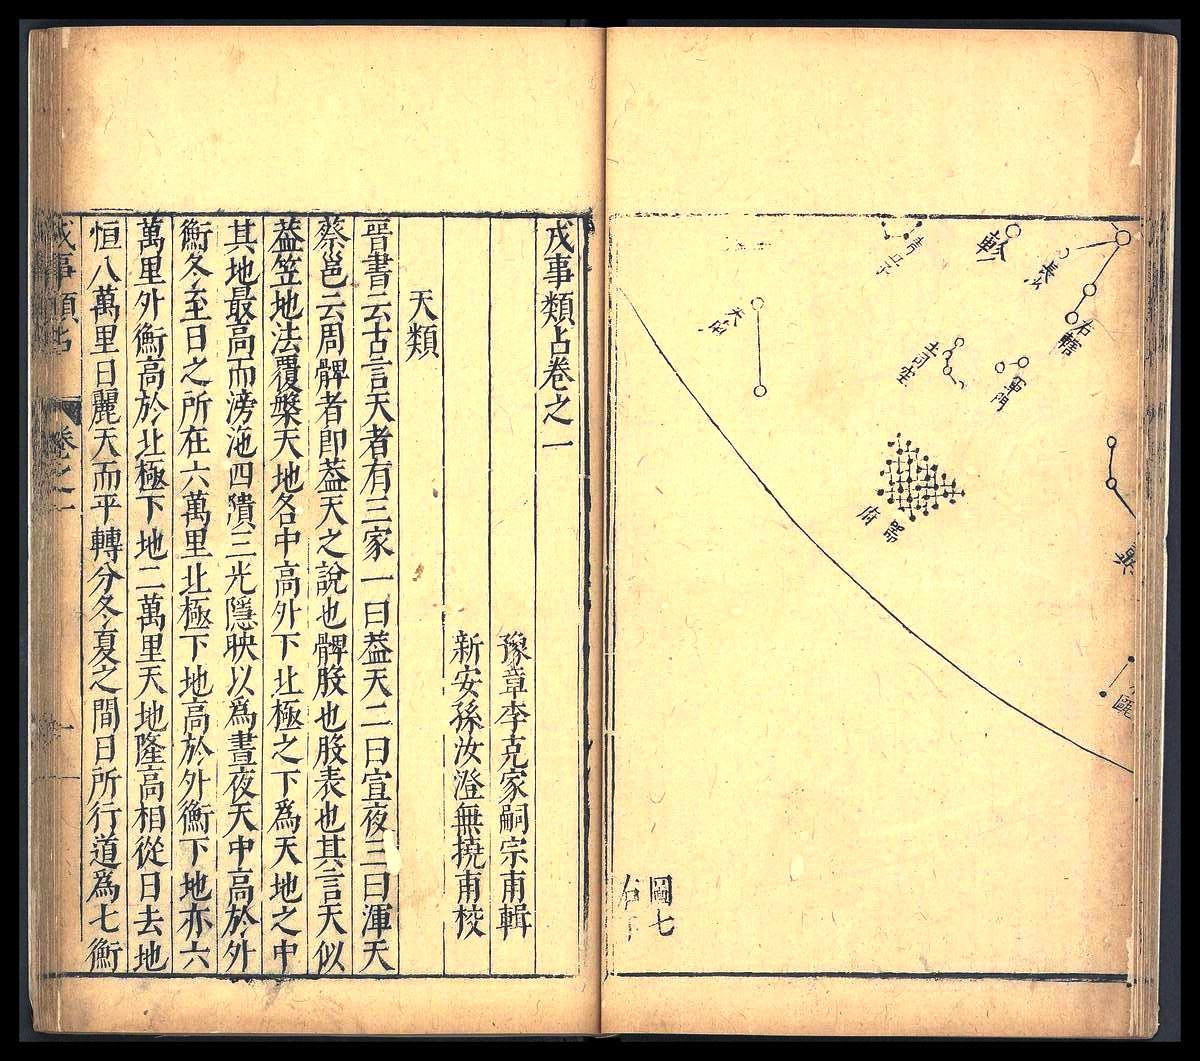 青丘
軫
長沙
右轄
天
土司空
軍門
器府
圖七
戎事類占卷之一
豫章李克家嗣宗甫輯
新安孫汝澄無撓甫校
天類
晉書云古言天者有三家一曰葢天二曰宣夜三曰渾天
蔡邕云周髀者即葢天之說也髀股也股表也其言天似
葢笠地法覆槃天地各中高外下北極之下爲天地之中
其地最高而滂沲四隤三光隱映以爲晝夜天中高於外
衡冬至日之所在六萬里北極下地高於外衡下地亦六
萬里外衡高於北極下地二萬里天地隆高相從日去地
恒八萬里日麗天而平轉分冬夏之間日所行道爲七衡
戎事類占
卷之一
一